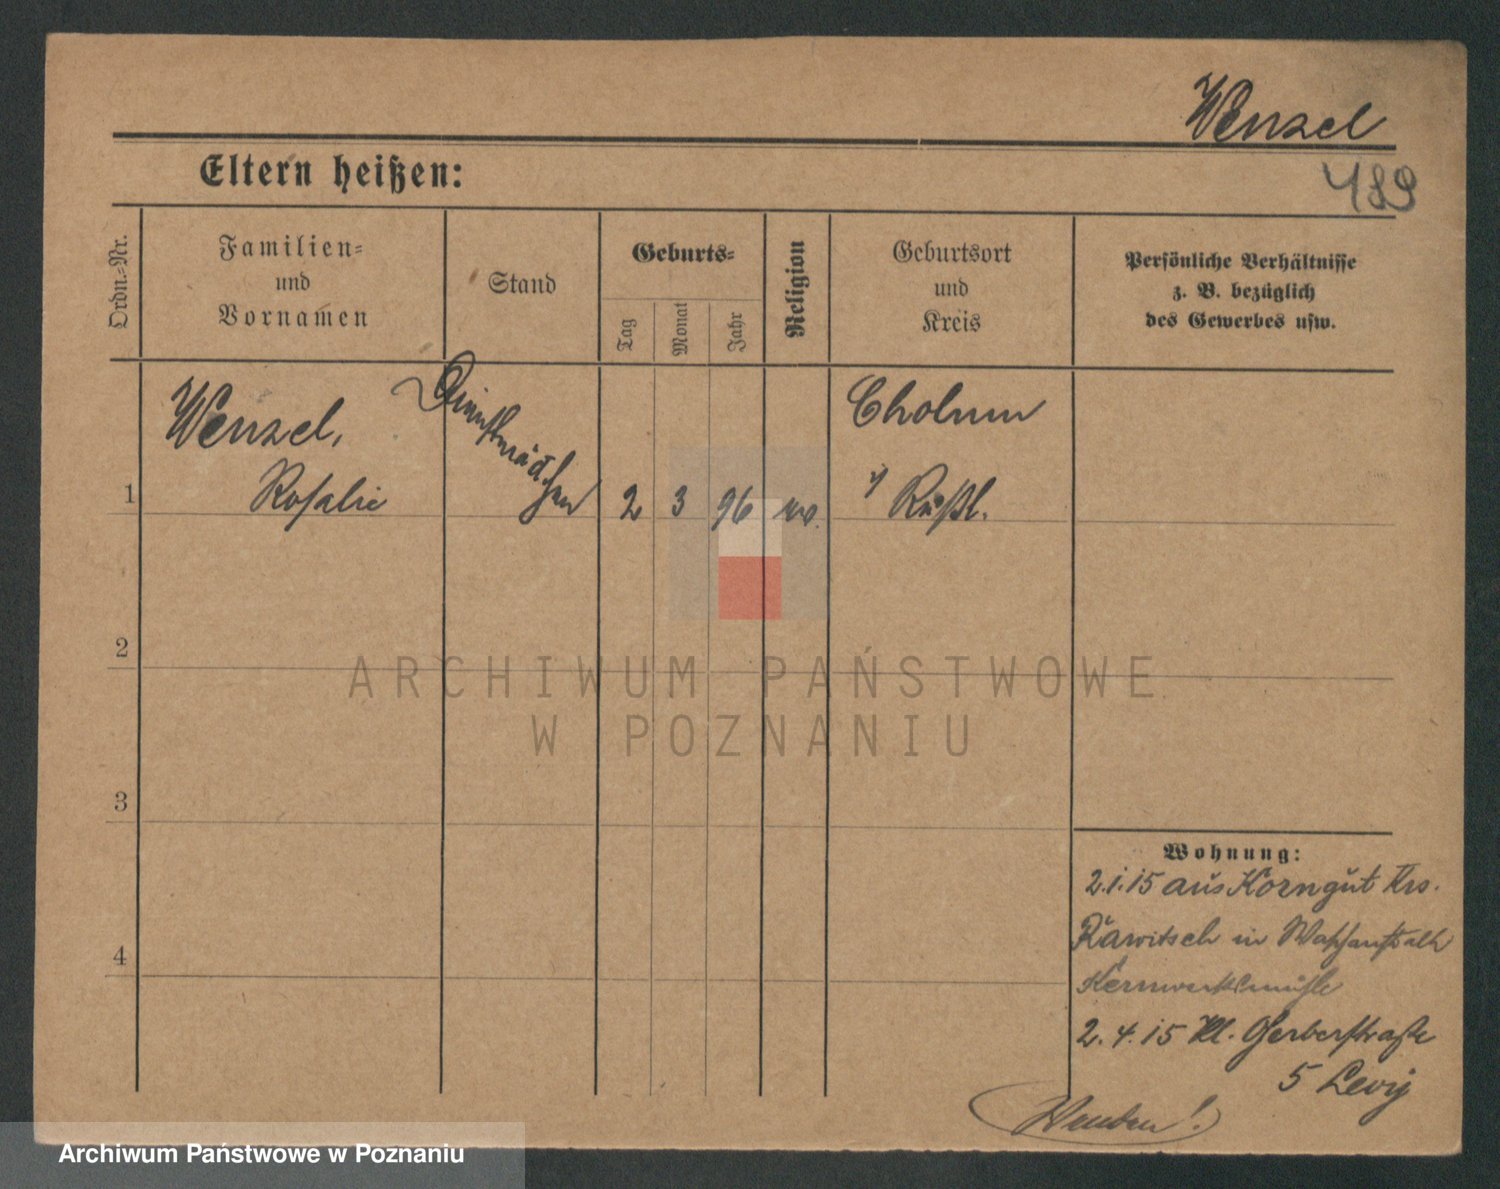 Wenzel
489
Eltern heißen:
Ordn.-Nr.
Familien-
und
Vornamen
Stand
Geburts-
Tag
Monat
Jahr
Religion
Geburtsort
und
Kreis
Persönliche Verhältnisse
z. B. bezüglich
des Gewerbes usw.
1
Wenzel,
Rosalie
Dienstmädchen
2
3
96
Cholmn
i/ Rußl.
2
3
4
Wohnung:
2.1.15 aus Korngut Krs.
Rawitsch in
Kernwerksmühle
2.4.15 Kl. Gerberstraße
5 Levy
Wenden!
ARCHIWUM PAŃSTWOWE
W POZNANIU
Archiwum Państwowe w Poznaniu